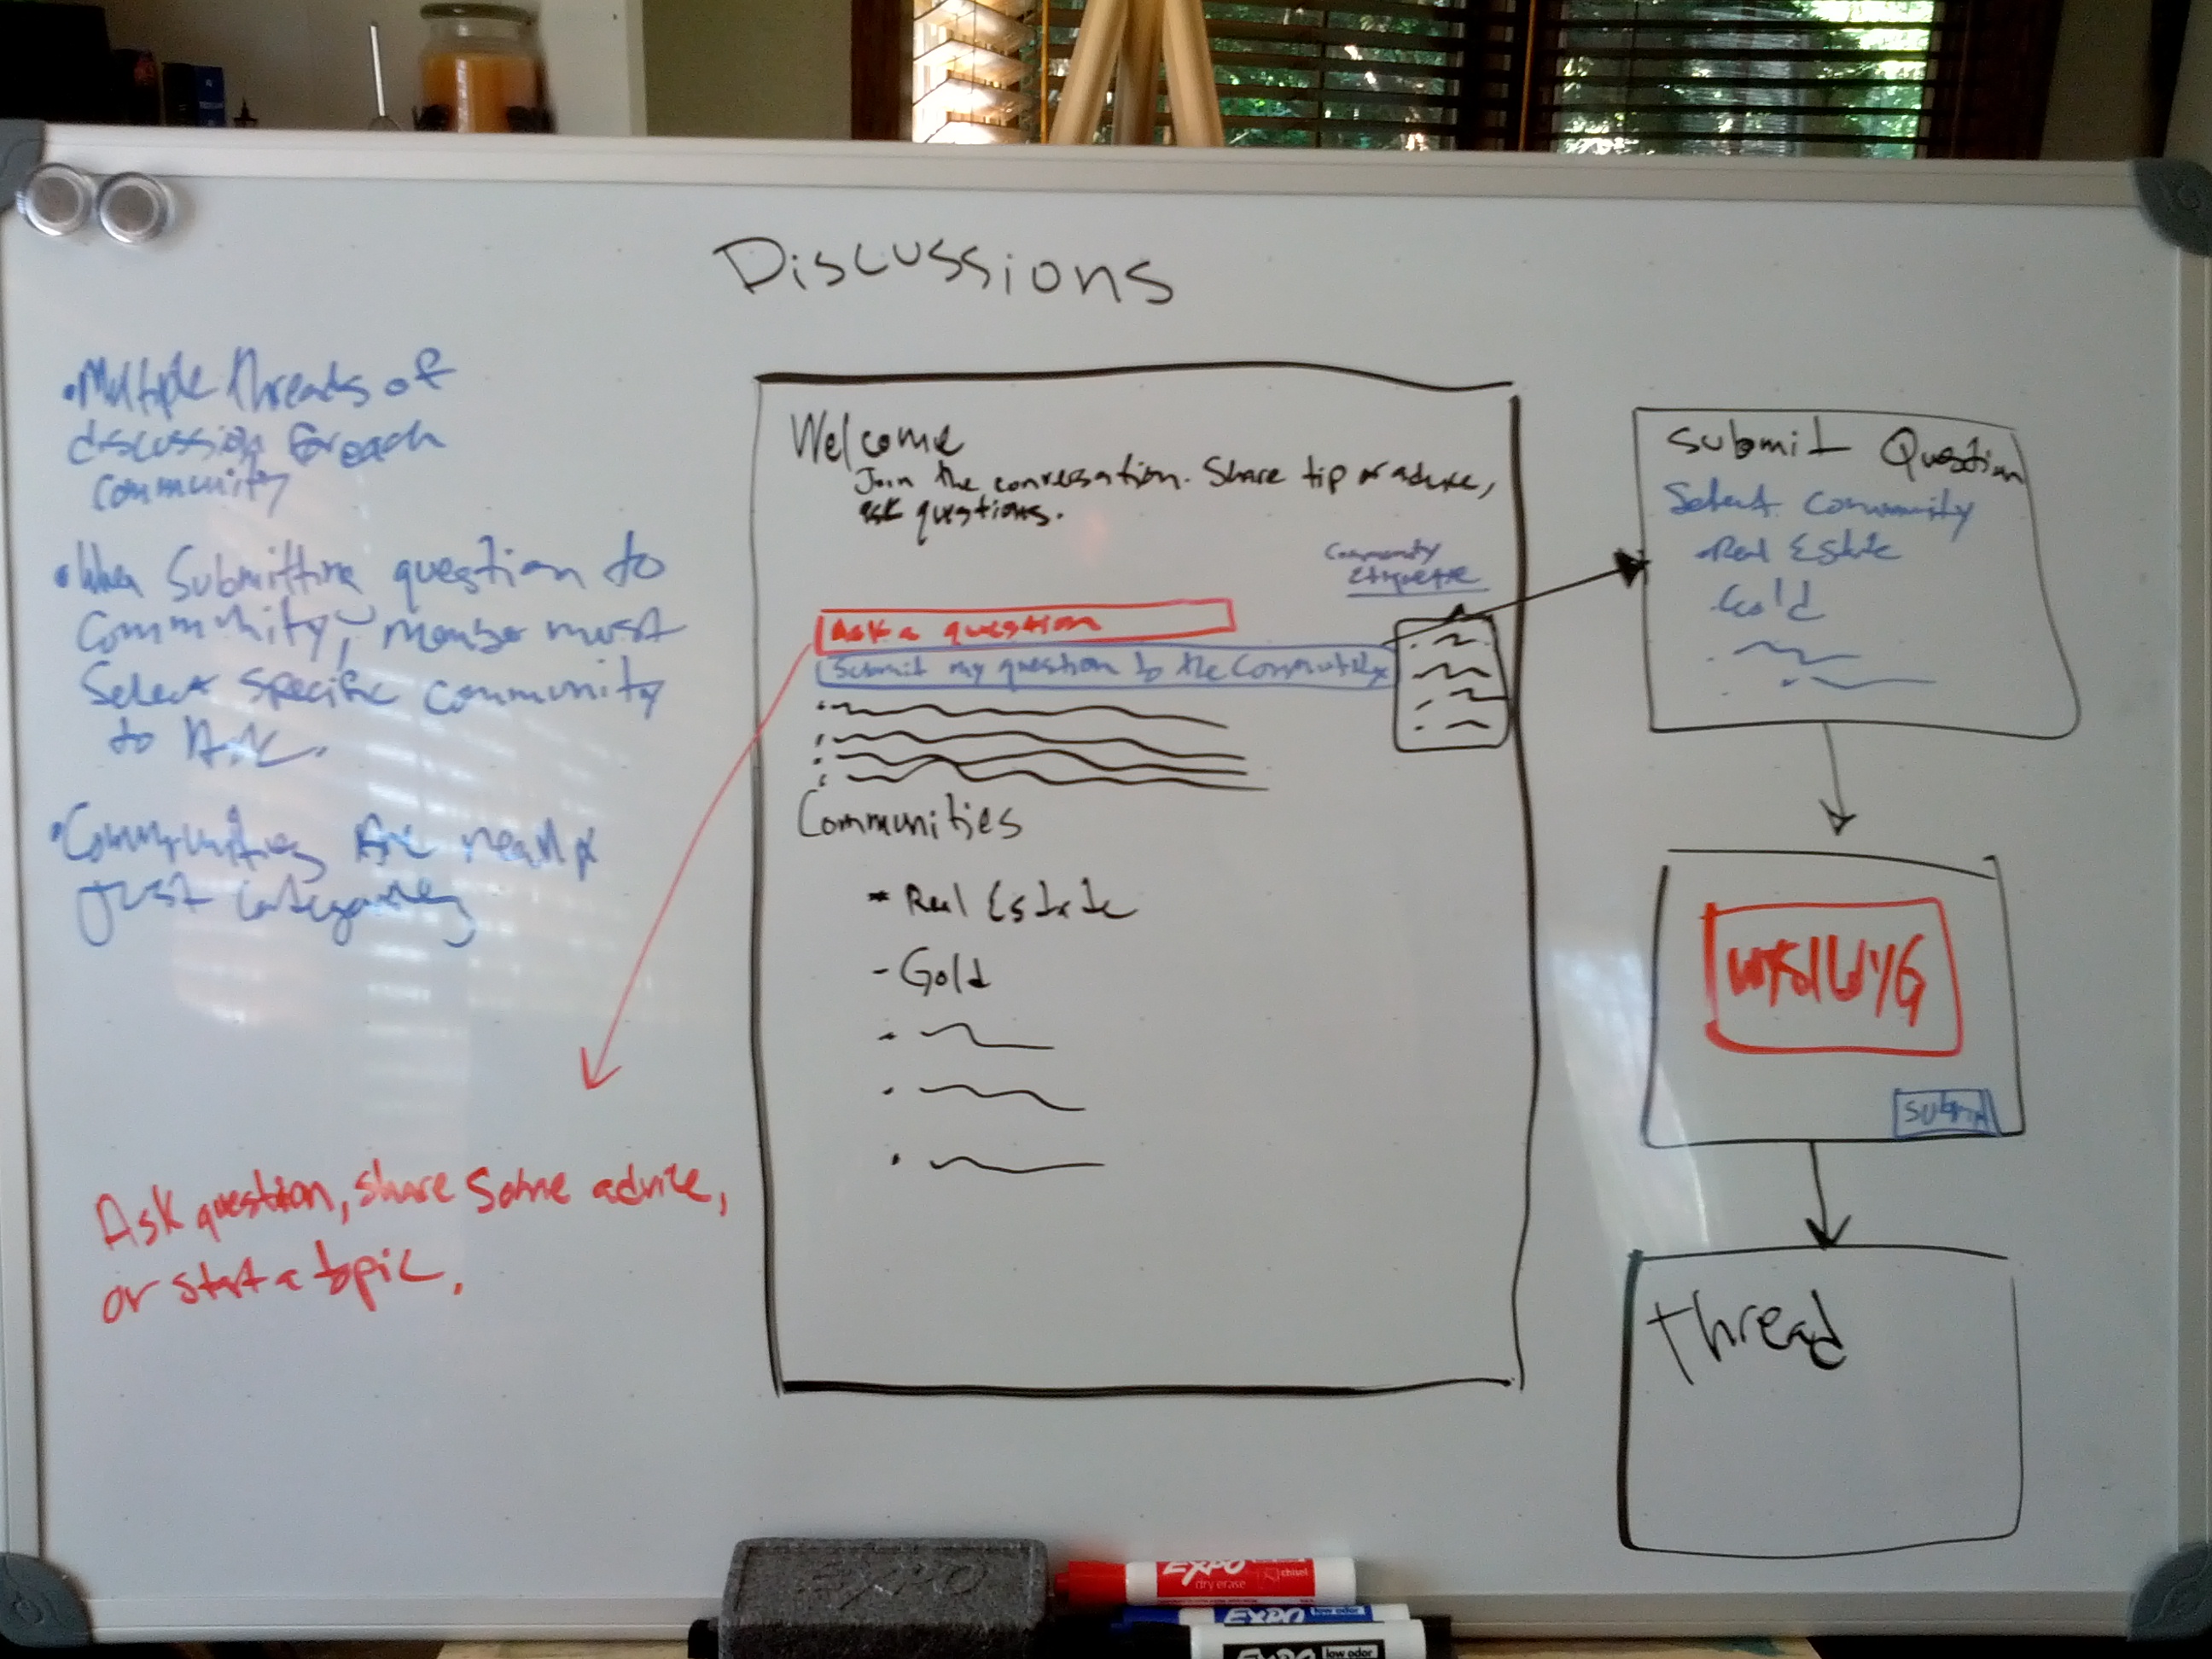 Discussions
• Multiple threads of
discussion for each
community
• When Submitting question to
Community, member must
Select specific community
to Ask.
• Communities Are really
just categories
Ask question, share some advice,
or start a topic.
Welcome
Join the conversation. Share tip or advice,
ask questions.
Community
Etiquette
Ask a question
Submit my question to the Community
Communities
* Real Estate
- Gold
Submit Question
Select Community
- Real Estate
Gold
WYSIWYG
Submit
Thread
EXPO
EXPO
dry erase
chisel
EXPO
low odor
EXPO
low odor